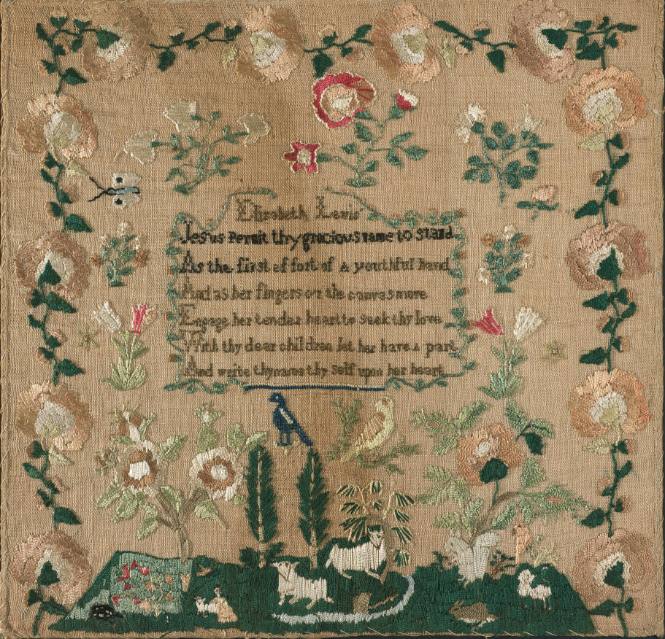 Elizabeth Lewis
Jesus Permit thy gracious name to stand
As the first effort of a youthful hand
And as her fingers on the canvas move
Engage her tender heart to seek thy love
With thy dear children let her have a part
And write thy name thy self upon her heart